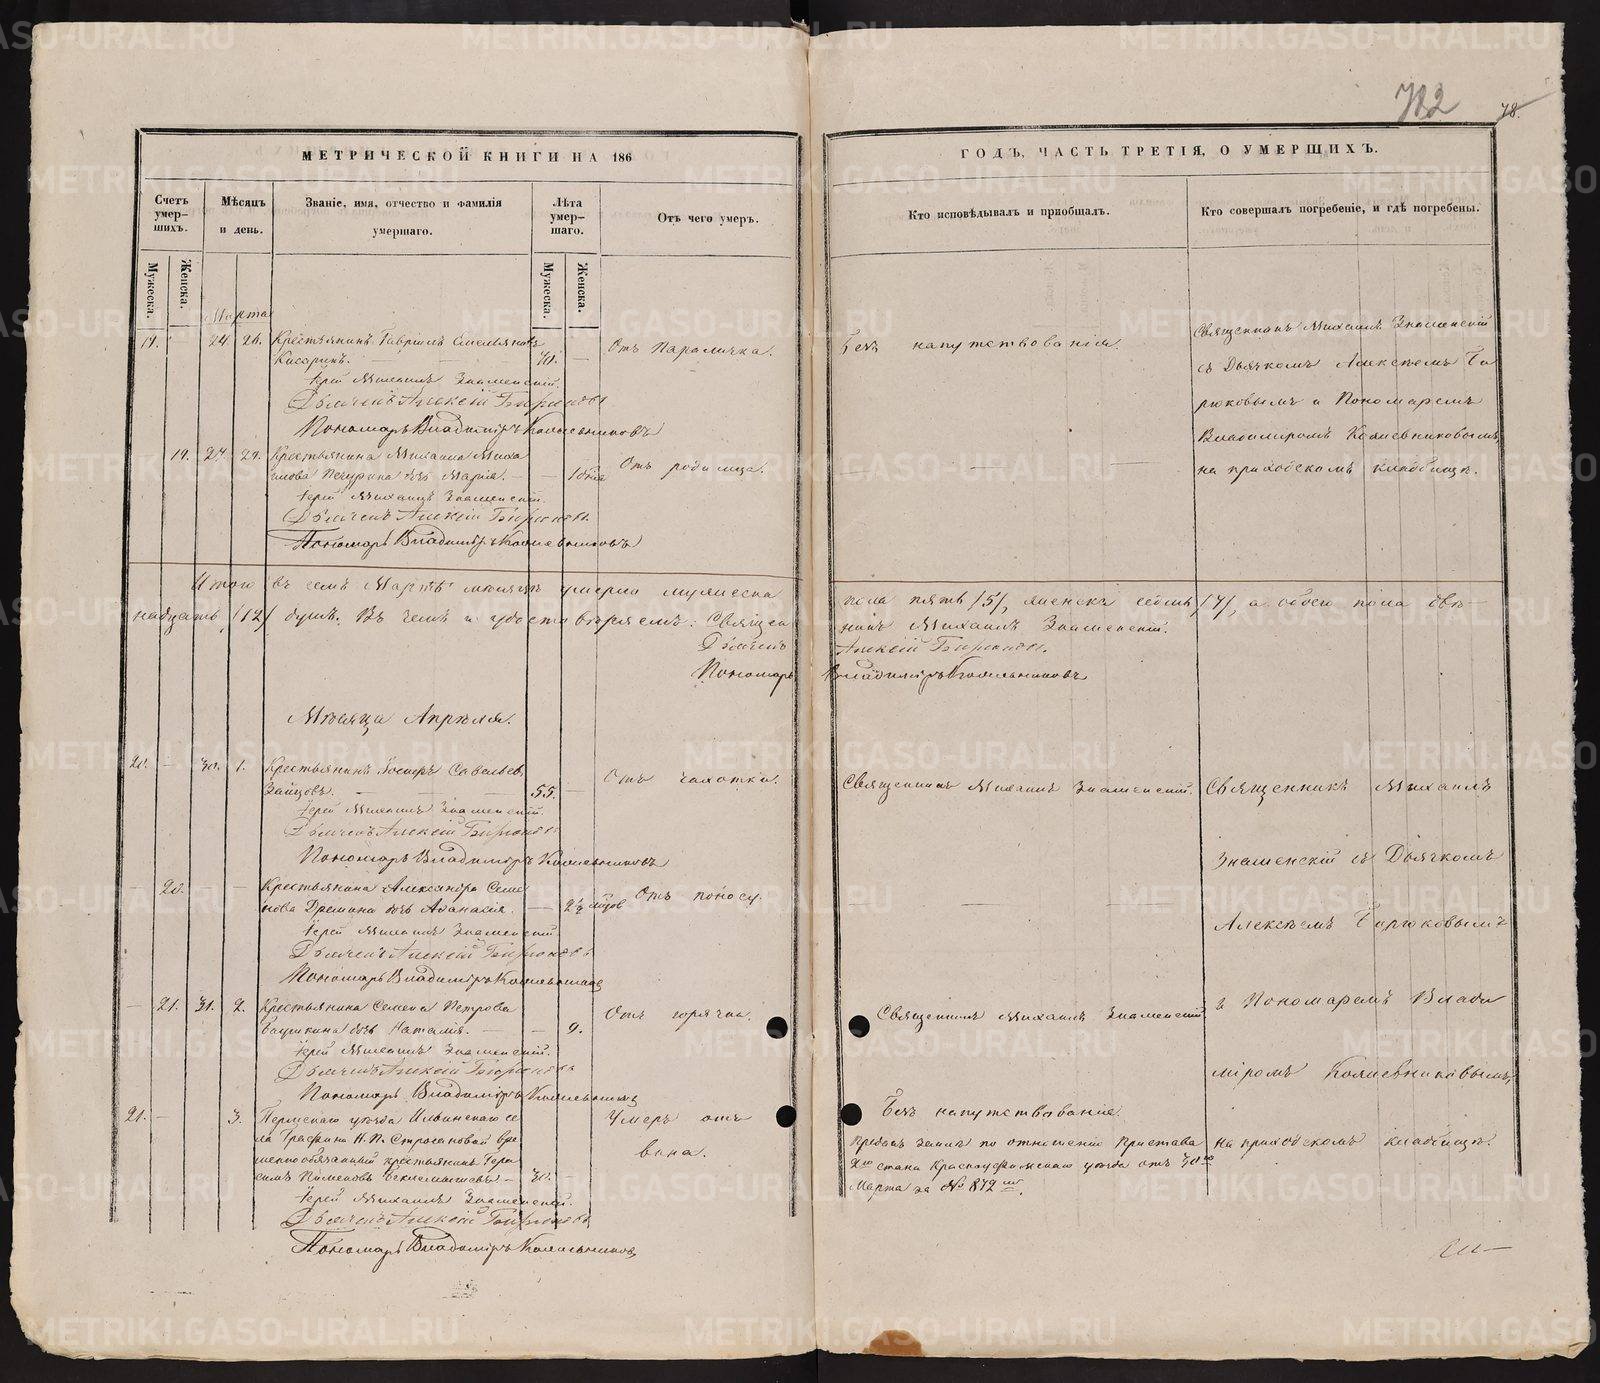 782
78.
МЕТРИЧЕСКОЙ КНИГИ НА 186
ГОДЪ, ЧАСТЬ ТРЕТІЯ, О УМЕРШИХЪ.
Счетъ умер-шихъ.
Мѣсяцъ и день.
Званіе, имя, отчество и фамилія умершаго.
Лѣта умер-шаго.
Отъ чего умеръ.
Кто исповѣдывалъ и пріобщалъ.
Кто совершалъ погребеніе, и гдѣ погребены.
Мужеска.
Женска.
Мужеска.
Женска.
Марта
19. 24 26. Крестьянинъ Гавріилъ Емельяновъ
70. — Отъ Паралича. Безъ напутствованія.
Іерей Михаилъ Знаменскій.
Дьячекъ Алексій Бирюковъ
Пономарь Владиміръ Кожевниковъ
Священникъ Михаилъ Знаменскій
съ Дьячкомъ Алексѣемъ Би
рюковымъ и Пономаремъ
Владиміромъ Кожевниковымъ
на приходскомъ кладбищѣ.
19. 27. 29. Крестьянина Михаила Миха
илова Печурина дочь Марія. — — Отъ родимца. — — —
Іерей Михаилъ Знаменскій.
Дьячекъ Алексій Бирюковъ
Пономарь Владиміръ Кожевниковъ
Итого въ семъ Мартѣ мѣсяцѣ умерло мужеска пола пять /5/, женска семь /7/, а обоего пола двѣ-
надцать /12/ душъ. Въ чемъ и удостовѣряемъ: Священ никъ Михаилъ Знаменскій.
Дьячекъ Алексій Бирюковъ.
Пономарь Владиміръ Кожевниковъ
Мѣсяца Апрѣля.
20. — 30. 1. Крестьянинъ Савельевъ
Зайцовъ. — — — 55. — Отъ чахотки. Священникъ Михаилъ Знаменскій.
Іерей Михаилъ Знаменскій.
Дьячекъ Алексій Бирюковъ
Пономарь Владиміръ Кожевниковъ
Священникъ Михаилъ
Знаменскій съ Дьячкомъ
Алексѣемъ Бирюковымъ
и Пономаремъ Влади
міромъ Кожевниковымъ,
на приходскомъ кладбищѣ.
— 20. — Крестьянина Александра Семе
нова дочь Аѳанасія. — 2½ мѣсѣцов Отъ поносу. — — —
Іерей Михаилъ Знаменскій.
Дьячекъ Алексій Бирюковъ
Пономарь Владиміръ Кожевниковъ
— 21. 31. 2. Крестьянина Семена Петрова
дочь Наталія. — — 9. Отъ горячки. Священникъ Михаилъ Знаменскій
Іерей Михаилъ Знаменскій.
Дьячекъ Алексій Бирюковъ
Пономарь Владиміръ Кожевниковъ
21. — 3. Пермскаго уѣзда Ильинскаго се
ла Графини Н. П. Строгановой вре
менно обязанный крестьянинъ Гера
симъ Пименовъ — 30. — Умеръ отъ вина.
Безъ напутствованія.
Преданъ землѣ по отношенію Пристава
2го стана Красноуфимскаго уѣзда отъ 30го
Марта за № 872мъ.
Іерей Михаилъ Знаменскій.
Дьячекъ Алексій Бирюковъ
Пономарь Владиміръ Кожевниковъ
METRIKI.GASO-URAL.RU